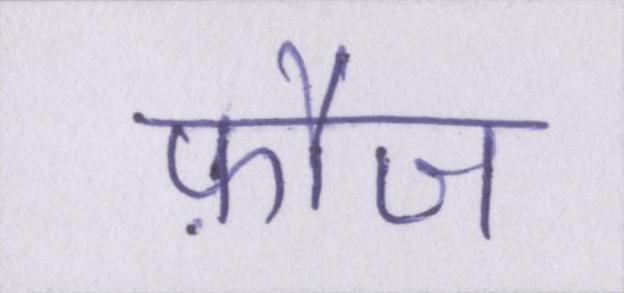 फ़ौज